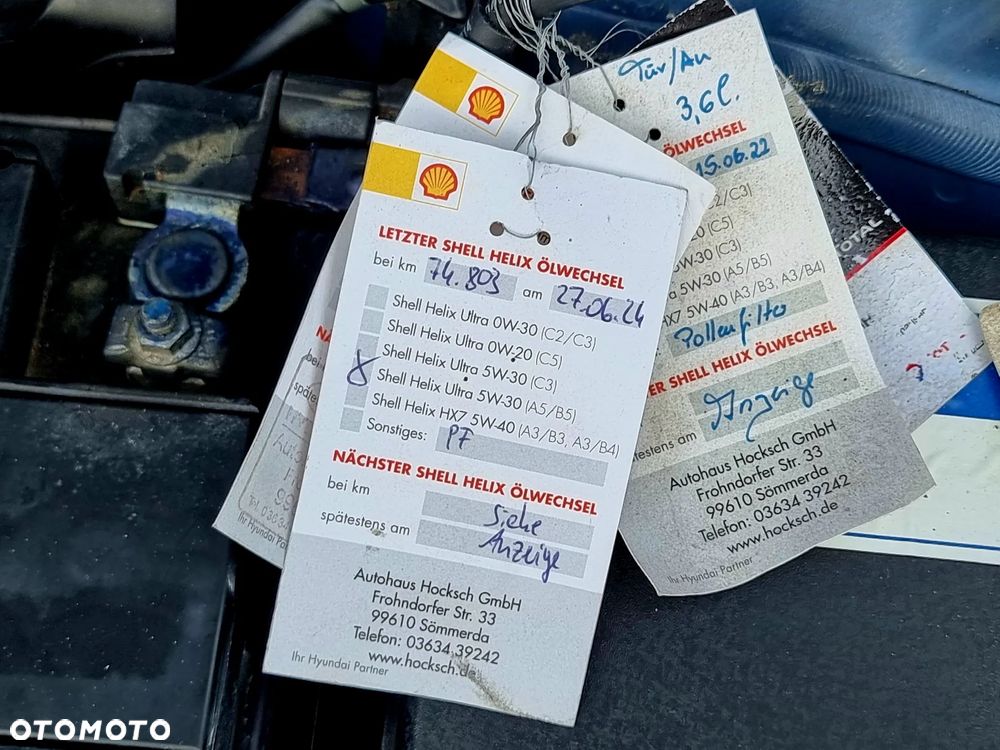 LETZTER SHELL HELIX ÖLWECHSEL
bei km 74.803 am 27.06.24
Shell Helix Ultra 0W-30 (C2/C3)
Shell Helix Ultra 0W-20 (C5)
Shell Helix Ultra 5W-30 (C3)
Shell Helix Ultra 5W-30 (A5/B5)
Shell Helix HX7 5W-40 (A3/B3, A3/B4)
Sonstiges: PF
NÄCHSTER SHELL HELIX ÖLWECHSEL
bei km
siehe
spätestens am Anzeige
Autohaus Hocksch GmbH
Frohndorfer Str. 33
99610 Sömmerda
Telefon: 03634 39242
www.hocksch.de
Ihr Hyundai Partner
Tür/Au
3,6l.
ÖLWECHSEL
15.06.22
C2/C3)
20 (C5)
5W-30 (C3)
5W-30 (A5/B5)
HX7 5W-40 (A3/B3, A3/B4)
Pollenfilter
TER SHELL HELIX ÖLWECHSEL
Anzeige
testens am
Autohaus Hocksch GmbH
Frohndorfer Str. 33
99610 Sömmerda
Telefon: 03634 39242
www.hocksch.de
Ihr Hyundai Partner
TOTAL
bei k
späteste
Ihr Hyundai Partner
OTOMOTO